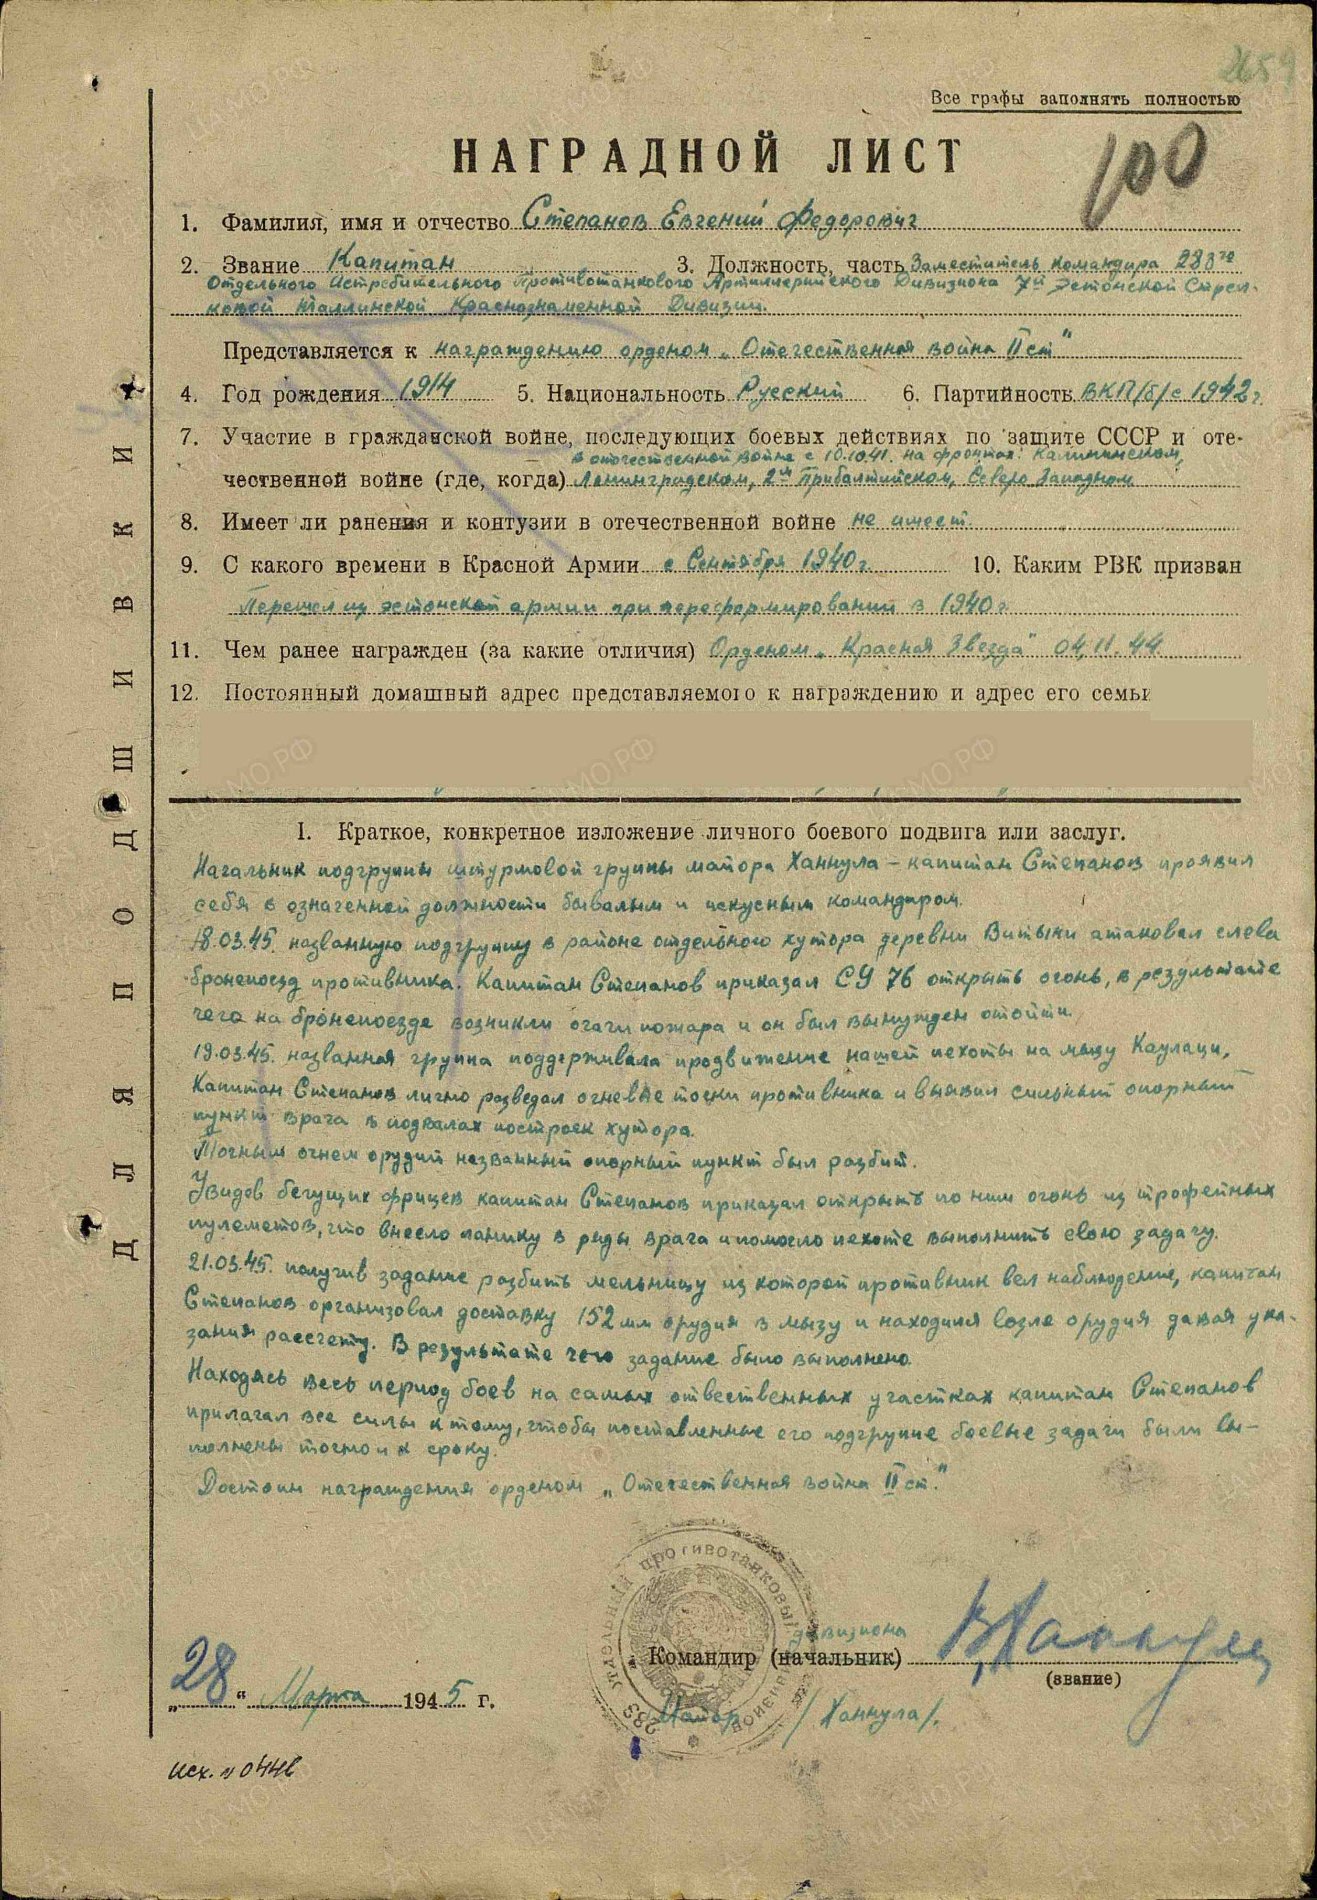 Все графы заполнять полностью
2659
100
НАГРАДНОЙ ЛИСТ
1. Фамилия, имя и отчество Степанов Евгений Федорович
2. Звание Капитан 3. Должность, часть Заместитель командира 283го
Отдельного Истребительного Противотанкового Артиллерийского Дивизиона 7й Эстонской Стрел-
ковой Таллинской Краснознаменной Дивизии.
Представляется к награждению орденом „Отечественная война II ст"
4. Год рождения 1914 5. Национальность Русский 6. Партийность ВКП/б/с 1942 г.
7. Участие в гражданской войне, последующих боевых действиях по защите СССР и оте-
в отечественной войне с 10.10.41. на фронтах: Калининском,
чественной войне (где, когда) Ленинградском, 2м Прибалтийском, Северо Западном
8. Имеет ли ранения и контузии в отечественной войне не имеет.
9. С какого времени в Красной Армии с Сентября 1940 г. 10. Каким РВК призван
Перешел из эстонской армии при переформировании в 1940 г
11. Чем ранее награжден (за какие отличия) Орденом „Красная Звезда" 04.11.44
12. Постоянный домашный адрес представляемого к награждению и адрес его семьи
I. Краткое, конкретное изложение личного боевого подвига или заслуг.
Начальник подгруппы штурмовой группы майора Ханнула – капитан Степанов проявил
себя в означенной должности бывалым и искусным командиром.
18.03.45. названную подгруппу в районе отдельного хутора деревни Витыни атаковал слева
бронепоезд противника. Капитан Степанов приказал СУ 76 открыть огонь, в результате
чего на бронепоезде возникли очаги пожара и он был вынужден отойти.
19.03.45. названная группа поддерживала продвижение нашей пехоты на мызу Каулаци,
Капитан Степанов лично разведал огневые точки противника и выявил сильный опорный
пункт врага в подвалах построек хутора.
Точным огнем орудий названный опорный пункт был разбит.
Увидев бегущих фрицев капитан Степанов приказал открыть по ним огонь из трофейных
пулеметов, что внесло панику в ряды врага и помогло пехоте выполнить свою задачу.
21.03.45. получив задание разбить мельницу из которой противник вел наблюдение, капитан
Степанов организовал доставку 152 мм орудия в мызу и находился возле орудия давая ука-
зания рассчету. В результате чего задание было выполнено.
Находясь весь период боев на самых отвественных участках капитан Степанов
прилагал все силы к тому, чтобы поставленные его подгруппе боевые задачи были вы-
полнены точно и к сроку.
Достоин награждения орденом „Отечественная война II ст."
дивизиона
Командир (начальник)
(звание)
Майор /Ханнула/.
„28" Марта 1945 г.
исх. № 044в
ДЛЯ ПОДШИВКИ
283 отдельный противотанковый дивизион
ЦАМО РФ